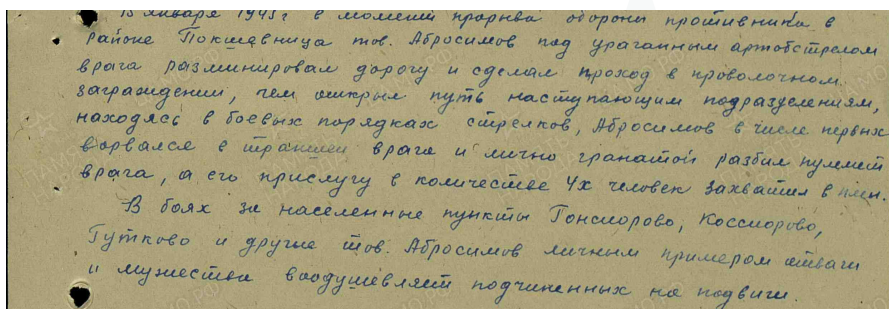 15 января 1945 г в момент прорыва обороны противника в
районе Покшевница тов. Абросимов под ураганным артобстрелом
врага разминировал дорогу и сделал проход в проволочном
заграждении, чем открыл путь наступающим подразделениям,
находясь в боевых порядках стрелков, Абросимов в числе первых
ворвался в траншеи врага и лично гранатой разбил пулемет
врага, а его прислугу в количестве 4х человек захватил в плен.
В боях за населенные пункты Гонсиорово, Коссиорово,
Гутково и другие тов. Абросимов личным примером отваги
и мужества воодушевляет подчиненных на подвиги.